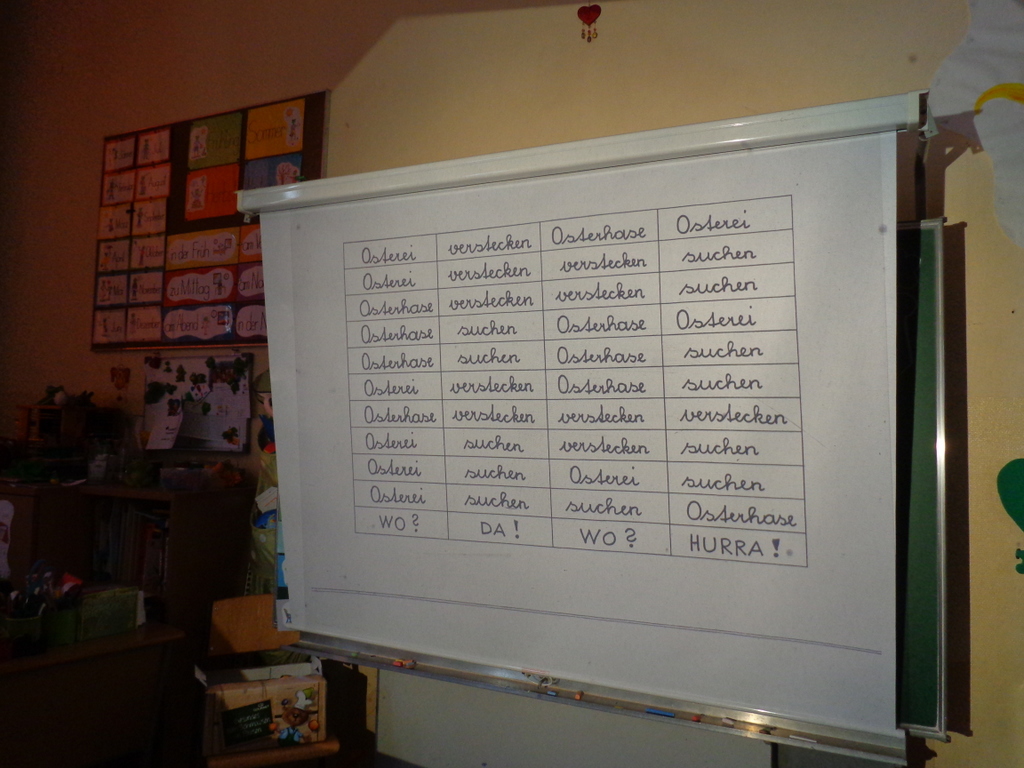 Sommer
in der Früh
zu Mittag
am Abend
in der N
Osterei verstecken Osterhase Osterei
Osterei verstecken verstecken suchen
Osterhase verstecken verstecken suchen
Osterhase suchen Osterhase Osterei
Osterhase suchen Osterhase suchen
Osterei verstecken Osterhase suchen
Osterhase verstecken verstecken verstecken
Osterei suchen verstecken suchen
Osterei suchen Osterei suchen
Osterei suchen suchen Osterhase
WO? DA! WO? HURRA!